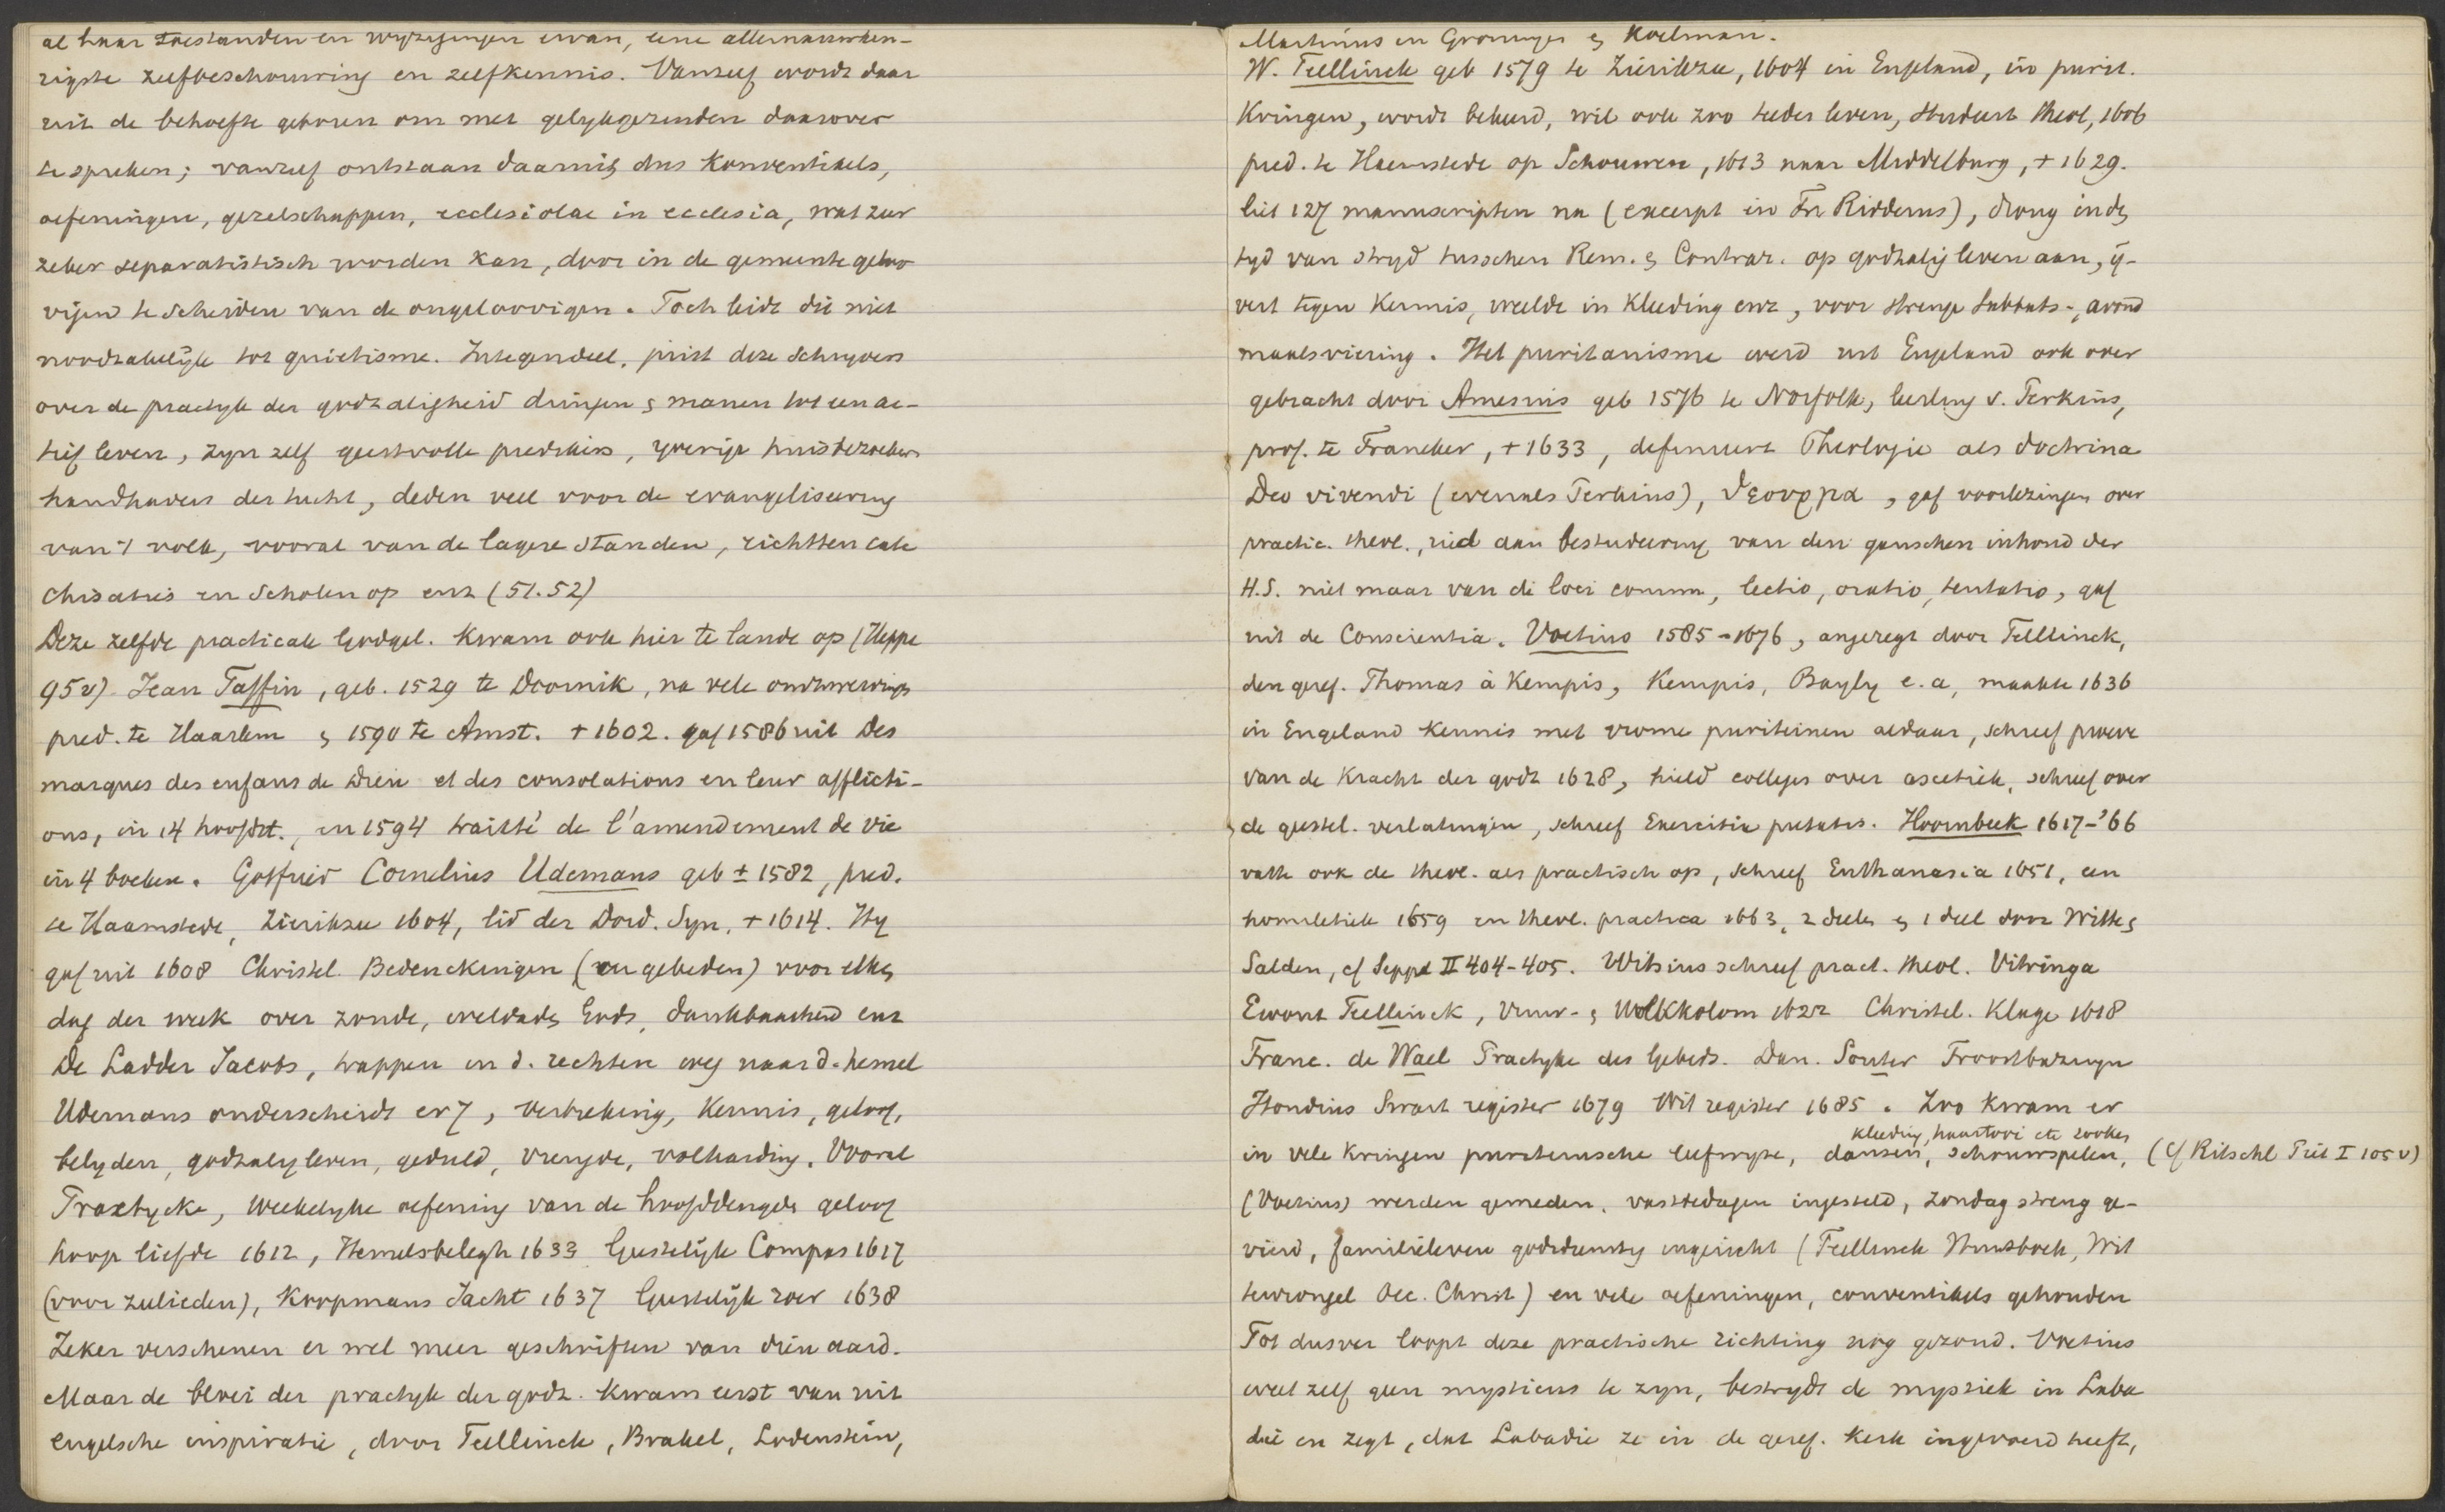 al haar toestanden en wyzigingen ervan, eene allernauwkeu-
rigste zelfbeschouwing en zelfkennis. Vanzelf wordt daar
uit de behoefte geboren om met gelykgezinden daarover
te spreken; vanzelf ontstaan daaruit dus Konventikels,
oefeningen, gezelschappen, ecclesiolae in ecclesia, wat zeer
zeker separatistisch worden kan, door in de gemeente geloo
vigen te scheiden van de ongeloovigen. Toch leidt dit niet
noodzakelijk tot quietisme. Integendeel, juist deze schryvers
over de practyk der godzaligheid dringen & manen tot een ac-
tief leven, zyn zelf geestvolle predikers, yverige huisbezoekers
handhavers der tucht, deden veel voor de evangeliseering
van 't volk, vooral van de lagere standen, richtten cate
chisaties en scholen op enz (51.52)
Deze zelfde practicale Godgel. kwam ook hier te lande op (Heppe
95v) Jean Taffin, geb. 1529 te Doornik, na vele omzwervings
pred. te Haarlem & 1590 te Amst. + 1602. gaf 1586 uit Des
marques des enfans de Dieu et des consolations en leur afflicti-
ons, in 14 hoofdst., en 1594 traitté de l'amendement de vie
in 4 boeken. Gotfried Cornelius Udemans geb ± 1582, pred.
te Haamstede, Zierikzee 1604, lid der Dord. Syn. + 1614. Hy
gaf uit 1608 Christel. Bedenckingen (en gebeden) voor elken
dag der week over zonde, weldaden Gods, dankbaarheid enz
De Ladder Jacobs, trappen en d. rechten weg naar d. hemel
Udemans onderscheidt er 7, verbreking, kennis, geloof,
belyden, godzalig leven, geduld, vreugde, volharding. Vooral
Practycke, Weekelyke oefening van de hoofddeugden geloof
hoop liefde 1612, Hemelsbelegh 1633 Geestelijk Compas 1617
(voor zeelieden), Koopmans Jacht 1637 Geestelijk roer 1638
Zeker verschenen er wel meer geschriften van dien aard.
Maar de bloei der practyk der godz. kwam eerst van uit
engelsche inspiratie, door Teellinck, Brakel, Lodenstein,
Martinus en Groningen & Koelman.
W. Teellinck geb 1579 te Zierikzee, 1604 in Engeland, in purit.
Kringen, wordt bekeerd, wil ook zoo teeder leven, studeert theol, 1606
pred. te Haemstede op Schouwen, 1613 naar Middelburg, + 1629.
liet 127 manuscripten na (excerpt in Fr Ridderus), drong in de
tyd van stryd tusschen Rem. & Contrar. op godzalig leven aan, ij-
vert tegen Kermis, weelde in kleeding enz, voor strenge sabbats-, avond
maalsviering. Het puritanisme werd uit Engeland ook over
gebracht door Amesius geb 1576 te Norfolk, leerling v. Perkins,
prof. te Franeker, + 1633, definieert Theologie als doctrina
Deo vivendi (evenals Perkins), gaf voorlezingen over
practic. theol., ried aan bestudeering van den ganschen inhoud der
H.S. niet maar van de loci comm, lectio, oratio, tentatio, gaf
uit de Conscientia. Voetius 1585-1676, angeregt door Tellinck,
den geref. Thomas à Kempis, Kempis, Bayly e.a, maakte 1636
in Engeland kennis met vrome puriteinen aldaar, schreef proeve
van de kracht der godz 1628, hield colleges over ascetiek, schreef over
de geestel. verlatingen, schreef Exercitia pietatis. Hoornbeek 1617-'66
vatte ook de theol. als practisch op, schreef Euthanasia 1651, een
homiletiek 1659 en theol. practica 1663, 2 deelen & 1 deel door Witte &
Salden, cf Seppe II 404-405. Witsius schreef pract. theol. Vitringa
Ewout Teellinck, Vuur- & Wolkkolom 1622 Christel. Klage 1618
Franc. de Wael Practyke des Gebeds. Dan. Souter Troostbazuyn
Hondius Swart register 1679 Wit register 1685. Zoo kwam er
kleeding, haartooi etc rooken
in vele kringen puriteinsche leefwyze, dansen, schouwspelen, (cf Ritschl Piet I 105v)
(Voetius) werden gemeden, vastedagen ingesteld, zondag streng ge-
vierd, familieleven godsdienstig ingericht (Teellinck Huisboek, Wit
tewrongel Oec. Christ) en vele oefeningen, conventikels gehouden
Tot dusver loopt deze practische richting nog gezond. Voetius
weet zelf geen mysticus te zyn, bestrydt de mystiek in Laba
die en zegt, dat Labadie ze in de geref. Kerk ingevoerd heeft,